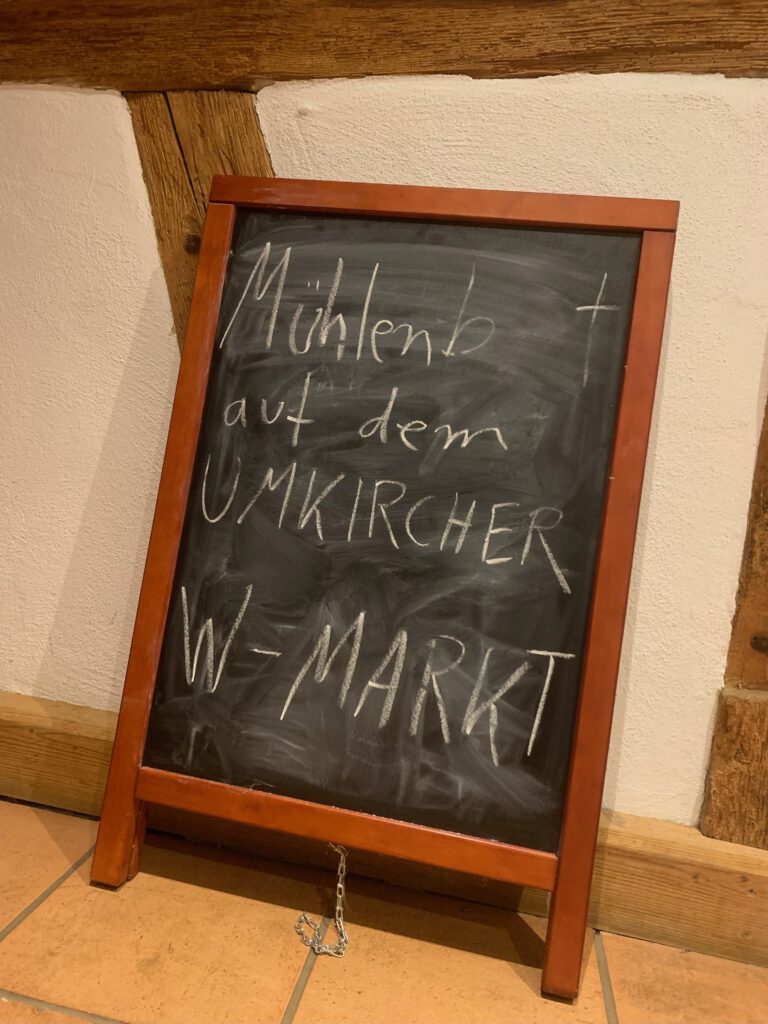 Mühlenb t
auf dem
UMKIRCHER
W-MARKT